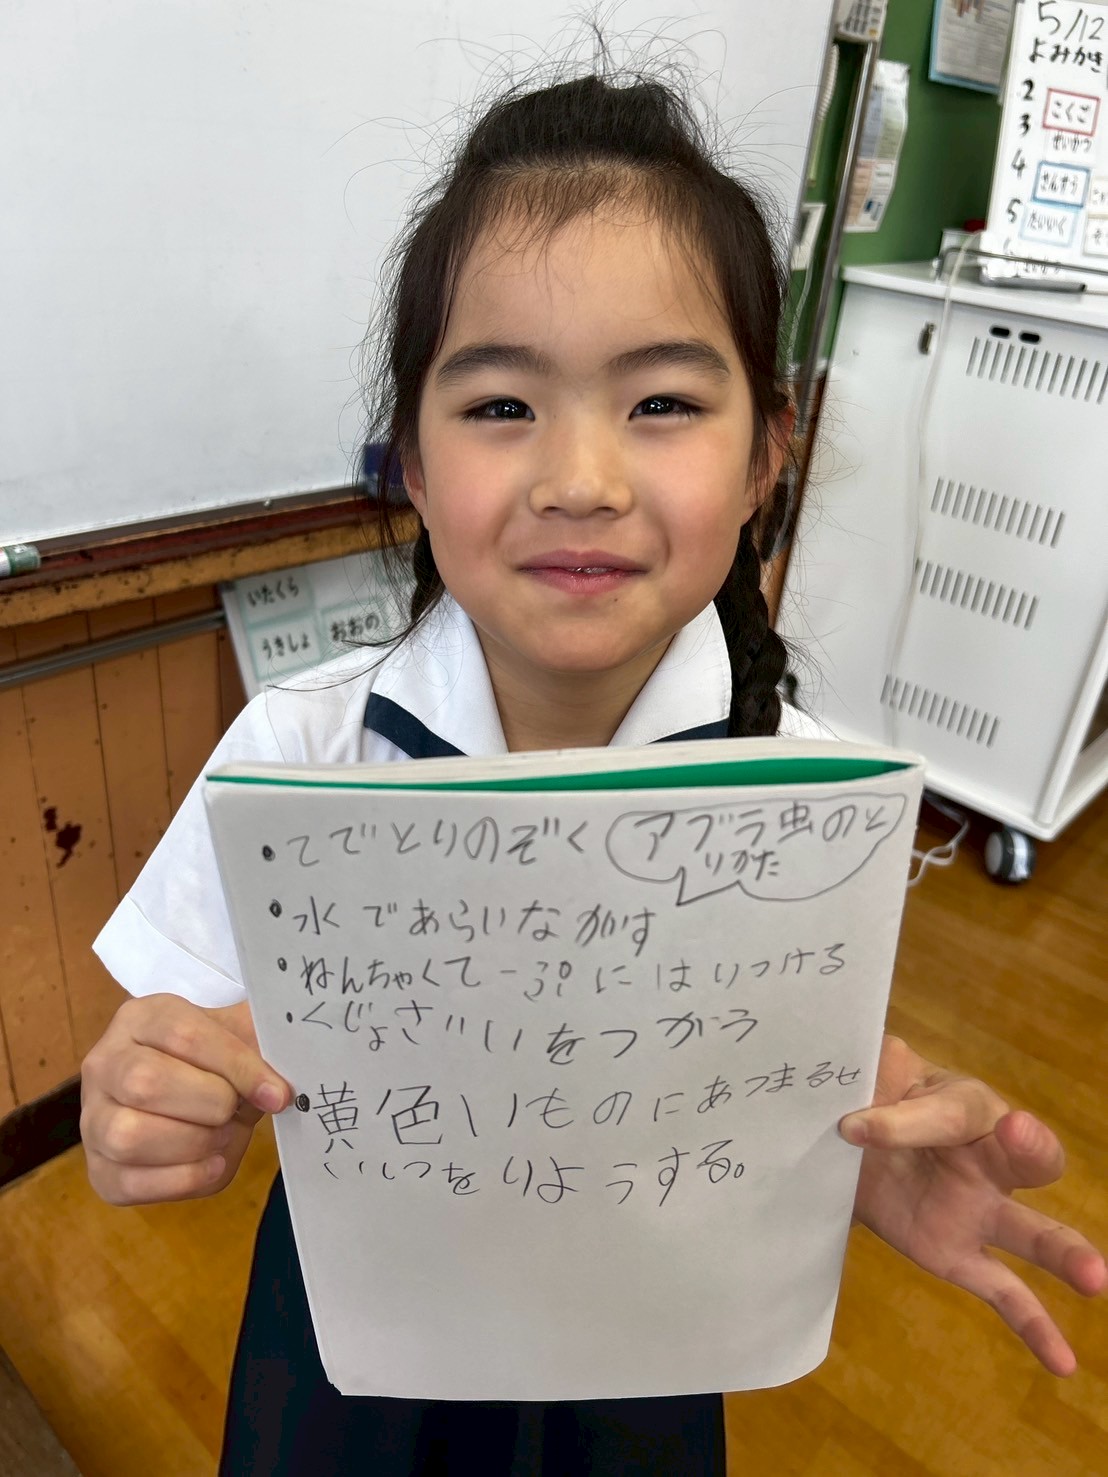 5/12
よみかき
2 こくご
3 せいかつ
4 さんすう
5 たいいく
いたくら
うきしょ おおの
・てでとりのぞく
アブラ虫のと
りかた
・水であらいながす
・ねんちゃくてーぷにはりつける
・くじょざいをつかう
・黄色いものにあつまるせ
いしつをりようする。